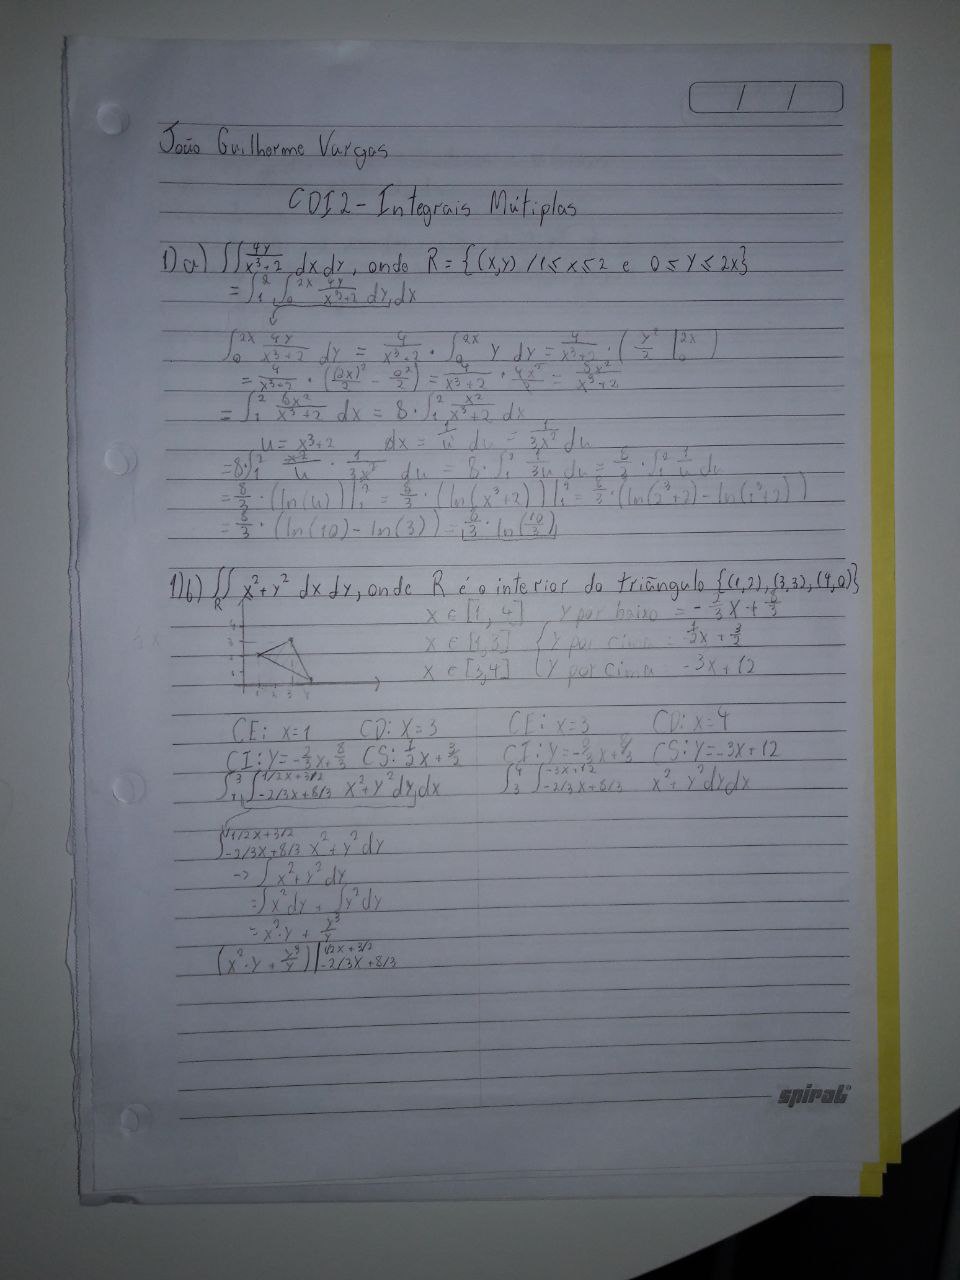 João Guilherme Vargas
CDI2 - Integrais Mútiplas
1) a) ∬ 4y/(x³+2) dx dy, onde R = {(x,y) / 1 ≤ x ≤ 2 e 0 ≤ y ≤ 2x}
= ∫₁² ∫₀^2x 4y/(x³+2) dy dx
∫₀^2x 4y/(x³+2) dy = 4/(x³+2) · ∫₀^2x y dy = 4/(x³+2) · (y²/2 |₀^2x)
= 4/(x³+2) · ((2x)²/2 - 0²/2) = 4/(x³+2) · 4x²/2 = 8x²/(x³+2)
= ∫₁² 8x²/(x³+2) dx = 8 · ∫₁² x²/(x³+2) dx
u = x³+2 dx = 1/u' du = 1/3x² du
= 8 · ∫₁² x²/u · 1/3x² du = 8 · ∫₁² 1/3u du = 8/3 · ∫₁² 1/u du
= 8/3 · (ln(u)) |₁² = 8/3 · (ln(x³+2)) |₁² = 8/3 · (ln(2³+2) - ln(1³+2))
= 8/3 · (ln(10) - ln(3)) = 8/3 · ln(10/3)
1) b) ∬_R x²+y² dx dy, onde R é o interior do triângulo {(1,2),(3,3),(4,0)}
x ∈ [1, 4] y por baixo = -2/3x + 8/3
x ∈ [1,3] { y por cima = 1/2x + 3/2
x ∈ [3,4] { y por cima = -3x + 12
CE: x=1 CD: x=3 CE: x=3 CD: x=4
CI: y=-2/3x+8/3 CS: 1/2x+3/2 CI: y=-2/3x+8/3 CS: y=-3x+12
∫₁³ ∫_-2/3x+8/3^1/2x+3/2 x²+y² dy dx ∫₃⁴ ∫_-2/3x+8/3^-3x+12 x²+y² dy dx
∫_-2/3x+8/3^1/2x+3/2 x²+y² dy
-> ∫ x²+y² dy
= ∫x² dy + ∫y² dy
= x²·y + y³/y
(x²·y + y³/y) |_-2/3x+8/3^1/2x+3/2
spiral